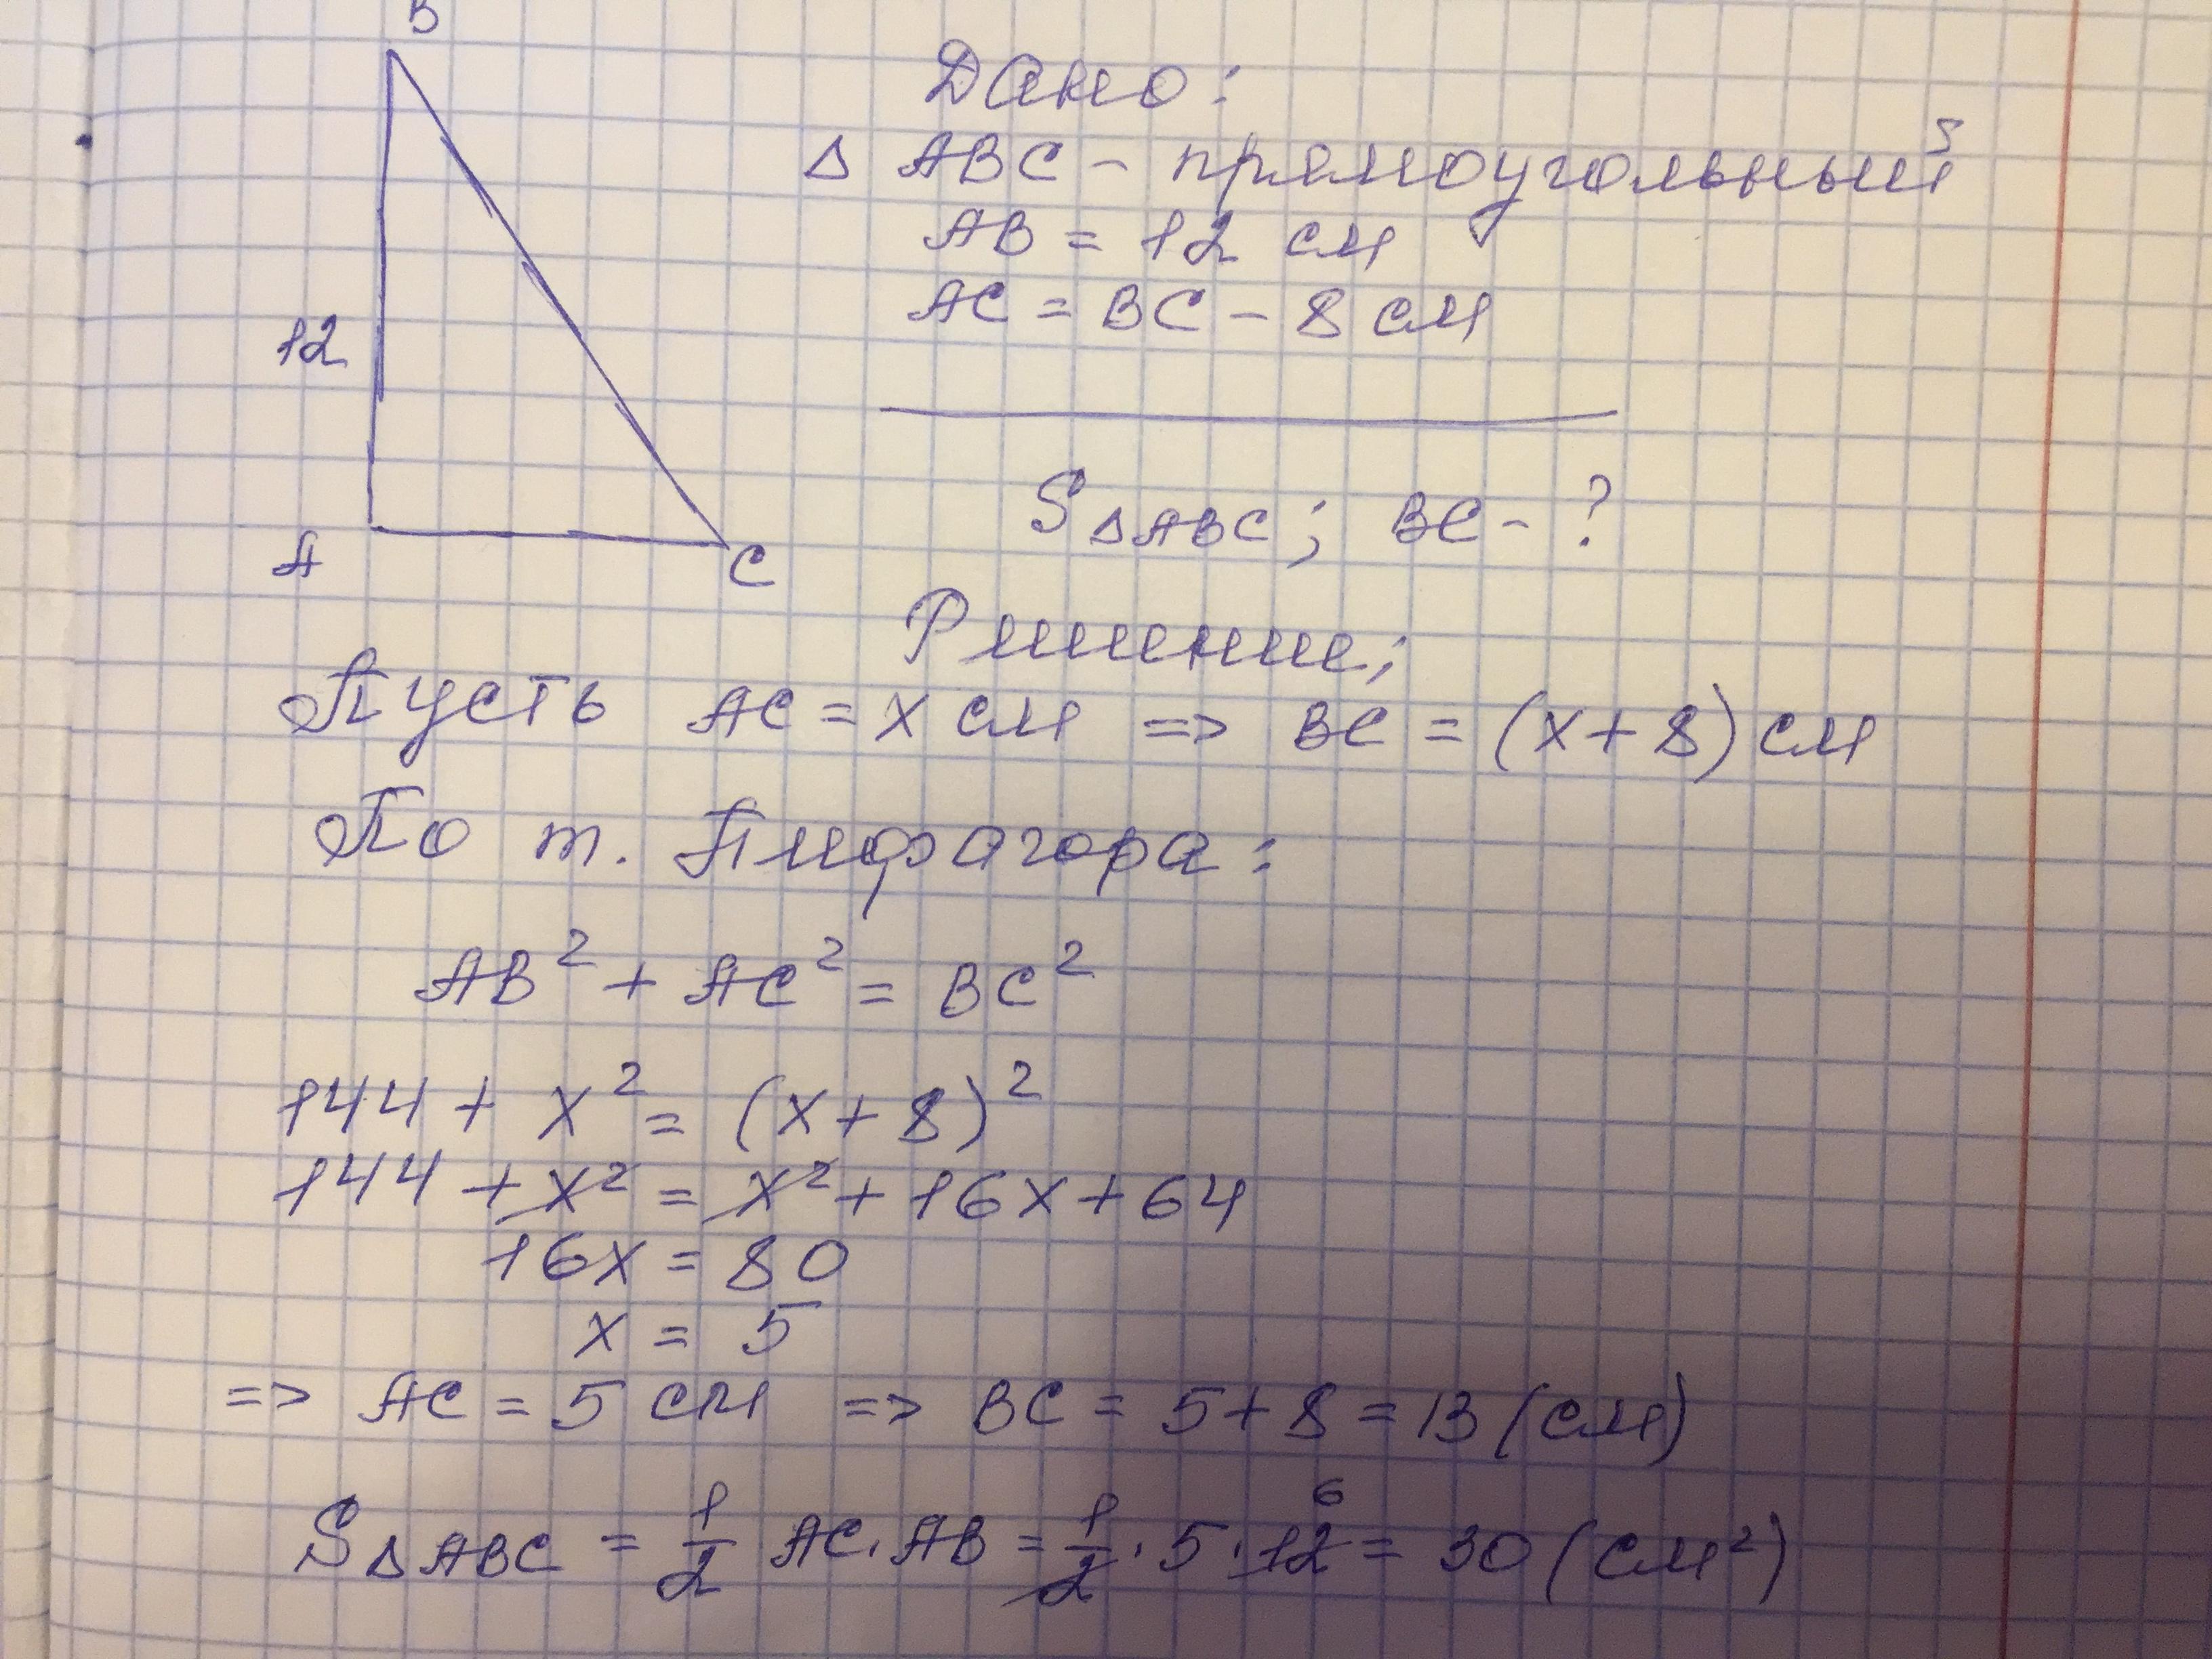 B
Дано:
Δ ABC - прямоугольный
AB = 12 см
AC = BC - 8 см
12
S ΔABC; BC - ?
A
C
Решение;
Пусть AC = x см => BC = (x + 8) см
По т. Пифагора:
AB² + AC² = BC²
144 + x² = (x + 8)²
144 + x² = x² + 16x + 64
16x = 80
x = 5
=> AC = 5 см => BC = 5 + 8 = 13 (см)
6
S ΔABC = 1/2 AC · AB = 1/2 · 5 · 12 = 30 (см²)